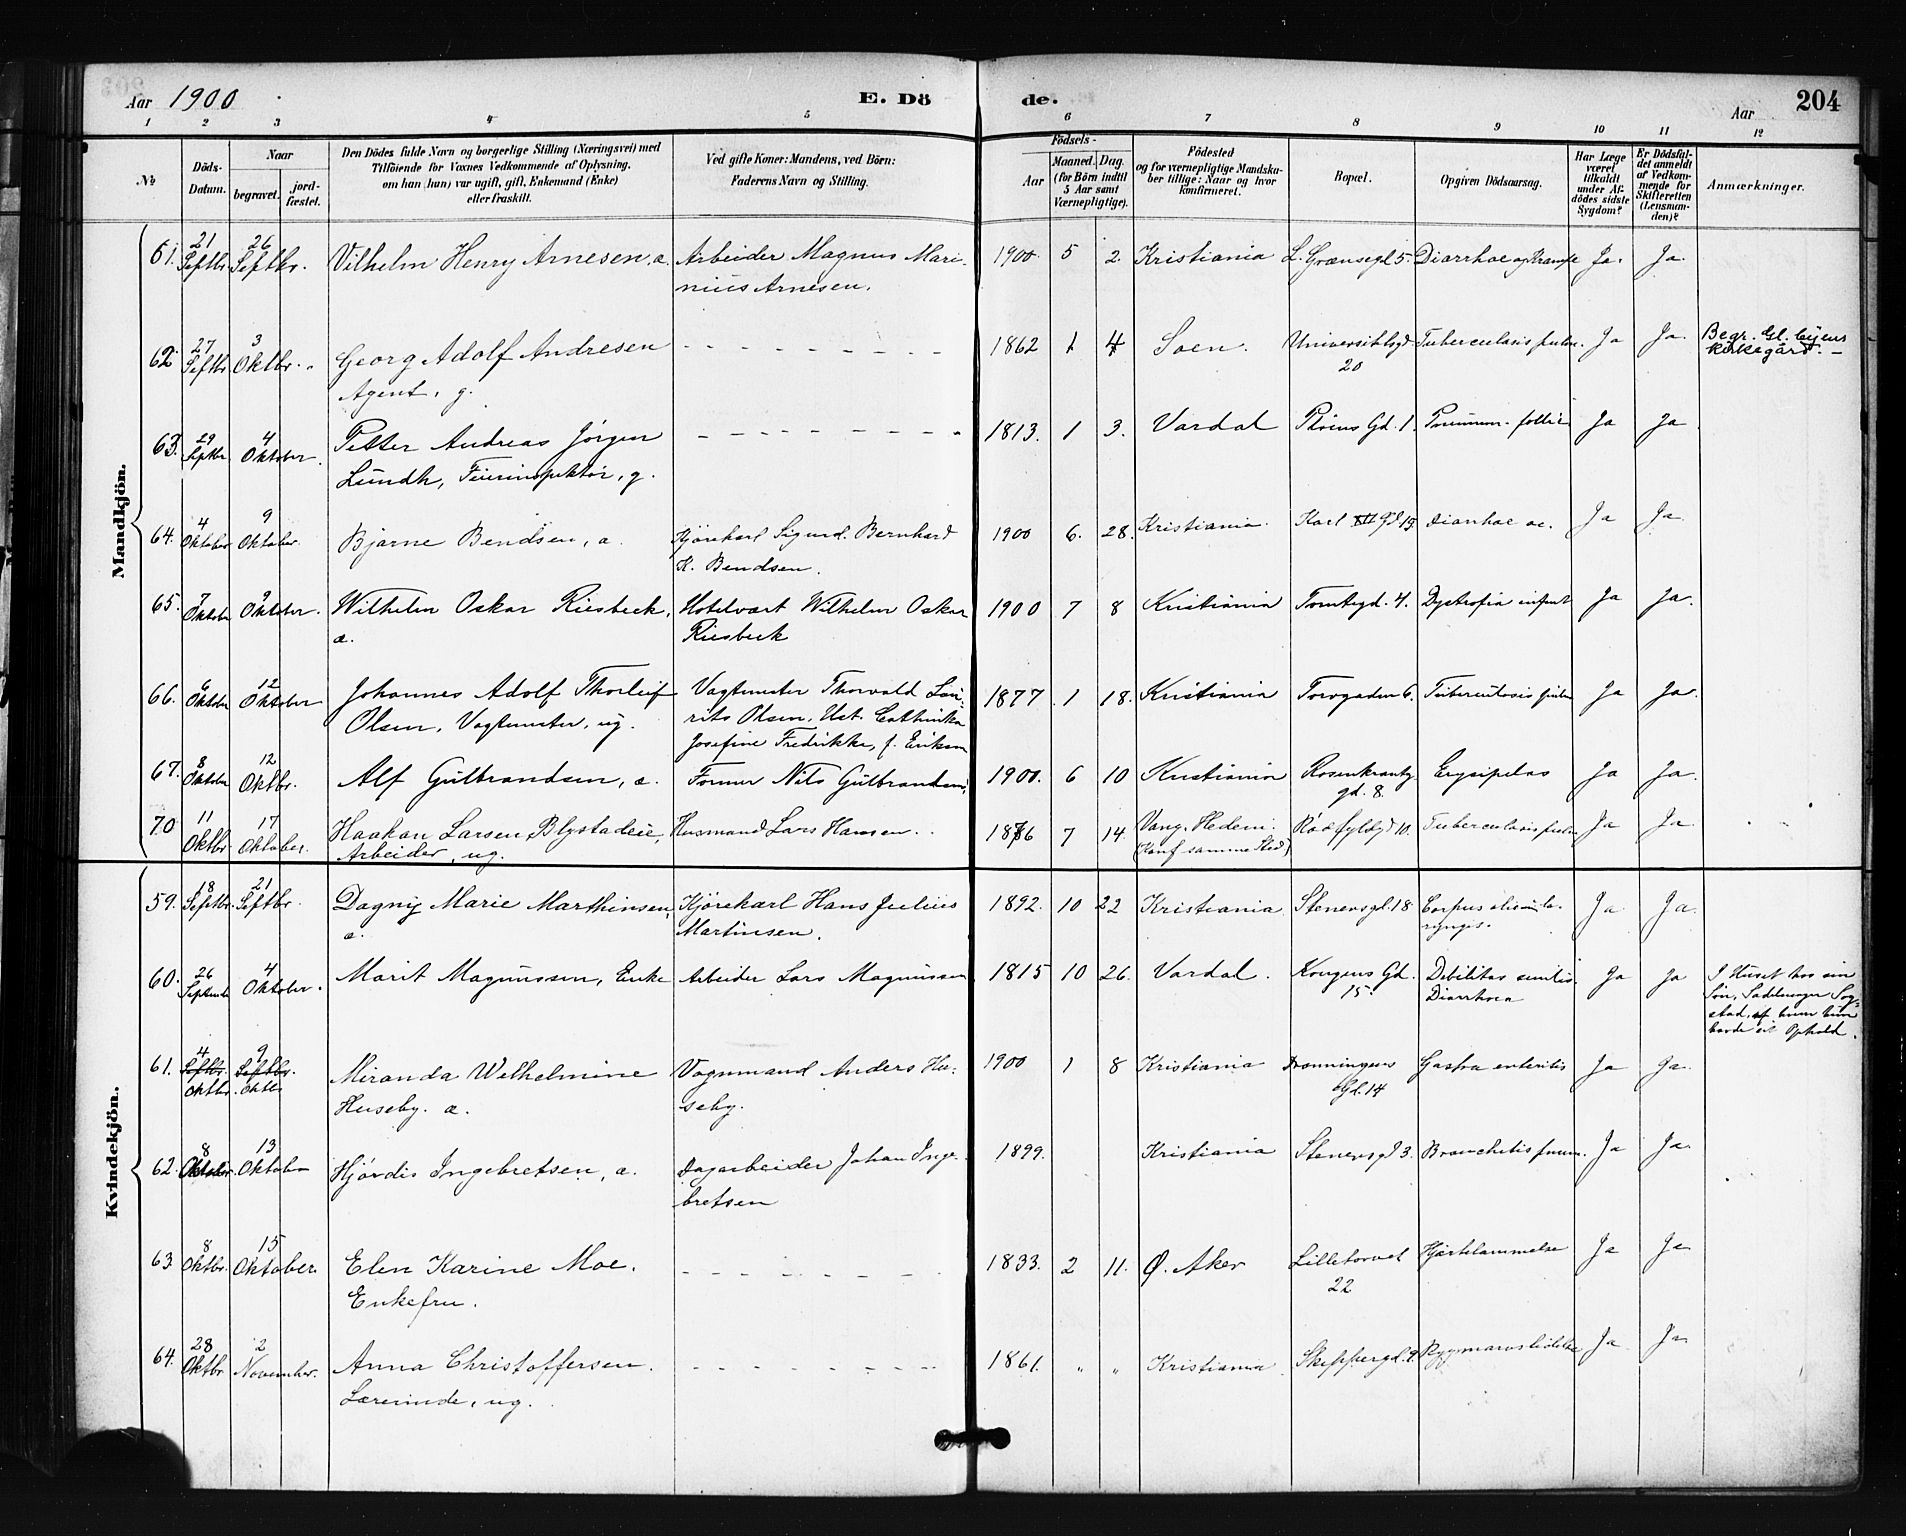 Aar 1900
E. Döde.
Aar
204
1 2 3 4 5 6 7 8 9 10 11 12
№
Döds-Datum.
Naar
begravet.
jord-fæstet.
Den Dödes fulde Navn og borgerlige Stilling (Næringsvei) med
Tilföiende for Voxnes Vedkommende af Oplysning,
om han (hun) var ugift, gift, Enkemand (Enke)
eller fraskilt.
Ved gifte Koner: Mandens, ved Börn:
Faderens Navn og Stilling.
Födsels-
Aar
Maaned. Dag.
(for Börn indtil
5 Aar samt
Værnepligtige).
Födested
og for værnepligtige Mandska-
ber tillige: Naar og hvor
konfirmeret.
Bopæl.
Opgiven Dödsaarsag.
Har Læge
været
tilkaldt
under Af-
dödes sidste
Sygdom?
Er Dödsfal-
det anmeldt
af Vedkom-
mende for
Skifteretten
(Lensman-
den)?
Anmærkninger.
Mandkjön.
61. 21 Septbr. 26 Septbr. Vilhelm Henry Arnesen, a. Arbeider Magnus Mari- 1900 5 2. Kristiania L. Grænsegd 5. Diarrhoe og Krampe Ja. Ja.
nius Arnesen.
62 27 Septbr 3 Oktbr. Georg Adolf Andresen 1862 1 4 Soen. Universitetsgd. Tuberculosis pulm. Ja Ja. Begr. Gl. Gejens
20 Kirkegård. –
Agent, g.
63. 29 Septbr 4 Oktober. Petter Andreas Jörgen 1813. 1 3. Vardal Pløens Gd. 1. Ja Ja
Lundh, g.
64. 4 Oktober 9 Oktober. Bjarne Bendsen, a. Kjörekarl Sigurd. Bernhard 1900 6. 28. Kristiania. Karl XII Gd 19 Diarrhoe ac. Ja Ja.
K. Bendsen.
65. 7 Oktober 9 Oktober. Wilhelm Oskar Riesbeck, Hotelvært Wilhelm Oskar 1900 7 8 Kristiania Tomtegd. 4. Dystrofia infant Ja Ja.
a. Riesbeck
66. 6 Oktober 12 Oktober Johannes Adolf Thorleif Vagtmester Thorvald Lau- 1877 1 18. Kristiania Torvgaden 6. Tuberculosis pulm Ja Ja.
Olsen, Vagtmester, ug. rits Olsen, Ust. Cathinka
Josefine Fredrikke, f. Eriksen
67. 8 Oktober 12 Oktbr. Alf Gulbrandsen, a. Former Nils Gulbrandsen, 1900. 6 10 Kristiania Rosenkrantz Erysipelas Ja Ja.
gd. 8.
70 11 Oktbr 17 Oktober. Haakon Larsen Blystadeie, Husmand Lars Hansen. 1876 7 14. Vang. Hedem. Rödfyldgd 10. Tuberculosis pulm Ja Ja.
Arbeider, ug. (Konf samme Sted)
Kvindekjön.
59. 18 Septbr. 21 Septbr. Dagny Marie Marthinsen, Kjörekarl Hans Julius 1892. 10 22 Kristiania Stenersgd. 18 Corpus alien. la- Ja Ja.
a. Martinsen. ryngis.
60. 26 September 4 Oktober. Marit Magnussen, Enke Arbeider Lars Magnussen 1815 10 26. Vardal. Kongens Gd. Debilitas senilis. Ja Ja I Huset hos sin
15. Diarrhoea Sön, Sadelmager Sog-
stad, af hvem hun
havde sit Ophold.
61. 4 Septbr. Oktbr. 9 Septbr. Oktb. Miranda Wilhelmine Vognmand Anders Hu- 1900 1 8 Kristiania Dronningens Gastro enteritis Ja Ja.
Huseby. a. seby. Gd. 14
62. 8 Oktober. 13 Oktober Hjördis Ingebretsen, a. Dagarbeider Johan Inge- 1899. Kristiania Stenersgd 3. Bronchitis pneum. Ja Ja.
bretsen
63 8 Oktbr. 15 Oktober. Elen Karine Moe. 1833. 2 11. Ø. Aker Lilletorvet Hjertelammelse Ja Ja
Enkefru. 22
64. 28 Oktbr 2 November. Anna Christoffersen. 1861. " " Kristiania. Skippergd. 9. Rygmarvslidelse Ja Ja
Lærerinde, ug.